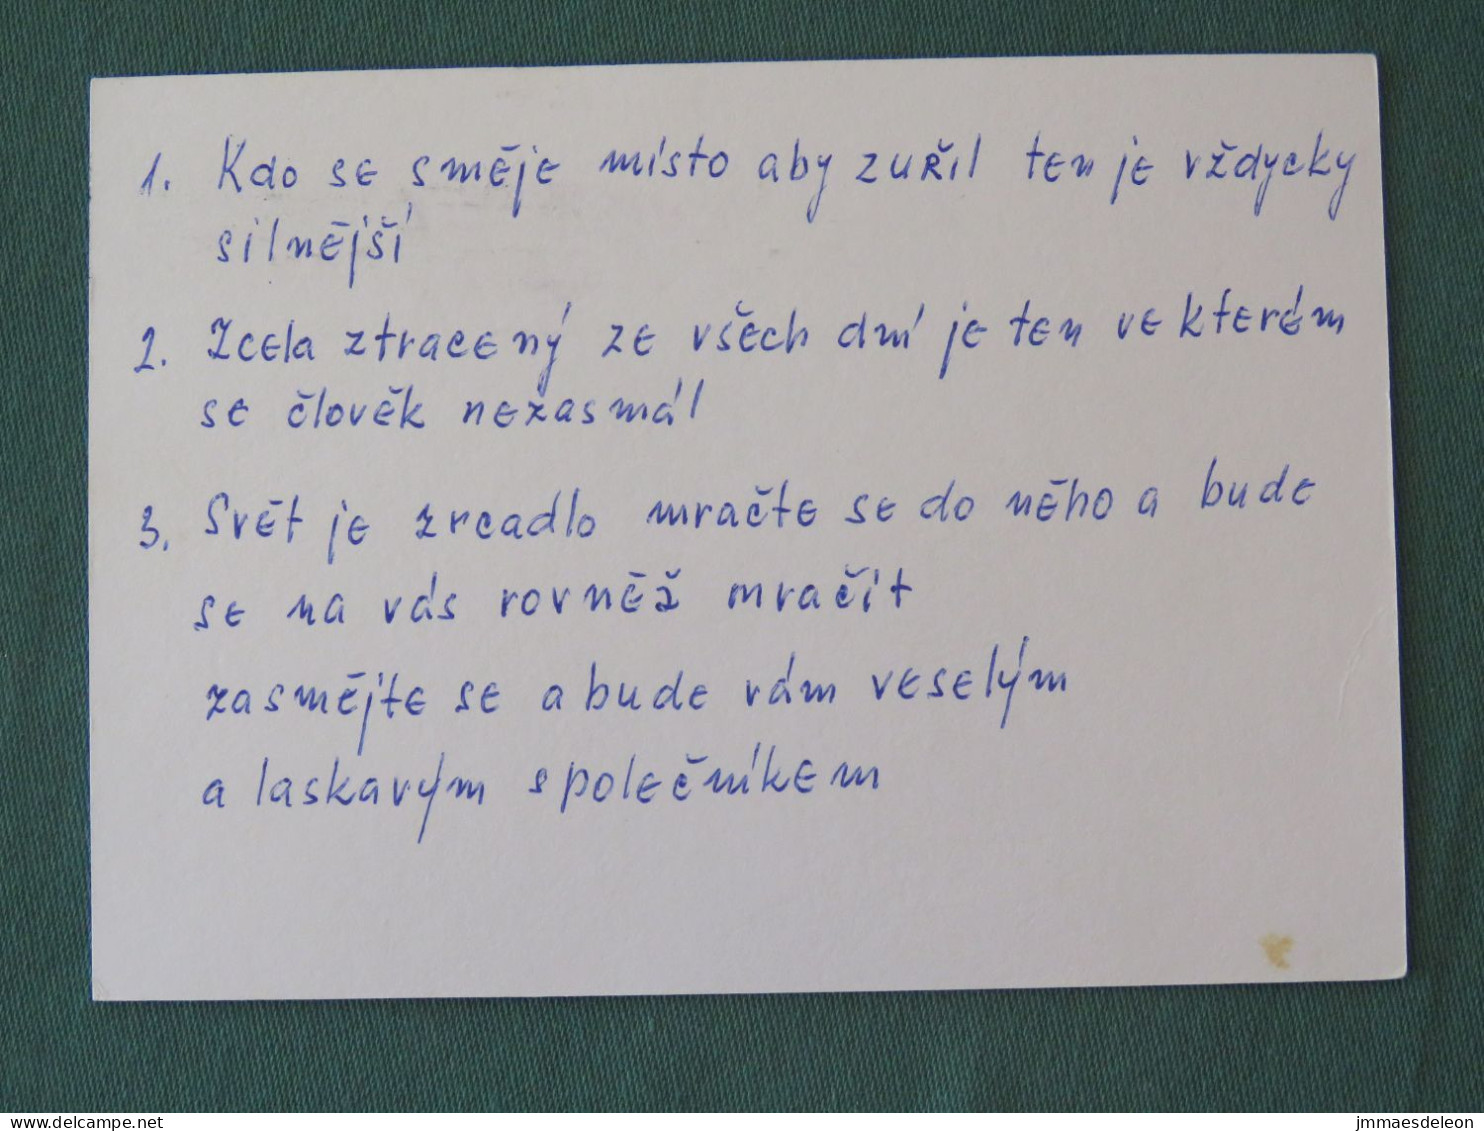 1. Kdo se směje místo aby zuřil ten je vždycky
silnější
2. Zcela ztracený ze všech dní je ten ve kterém
se člověk nezasmál
3. Svět je zrcadlo mračte se do něho a bude
se na vás rovněž mračit
zasmějte se a bude vám veselým
a laskavým společníkem
delcampe.net
jmmaesdeleon